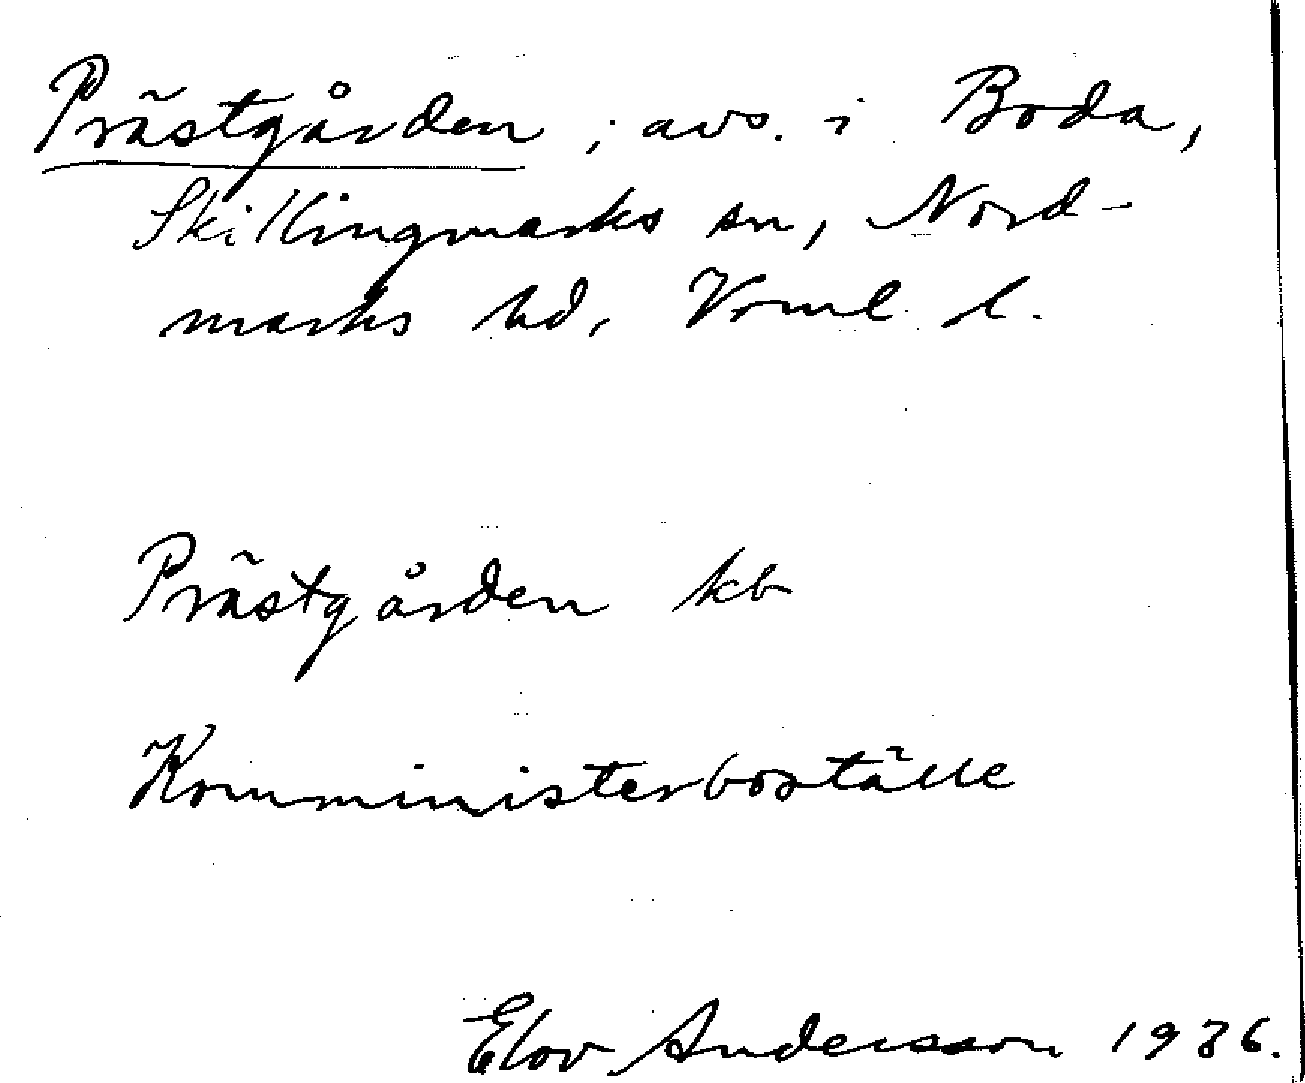 Prästgården; avs. i Boda,
Skillingmarks sn, Nord-
marks hd, Vrml. l.
Prästgården kb
Komministerboställe
Elov Andersson 1936.